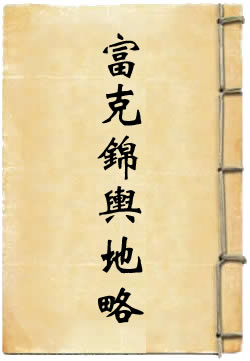 富克錦輿地略